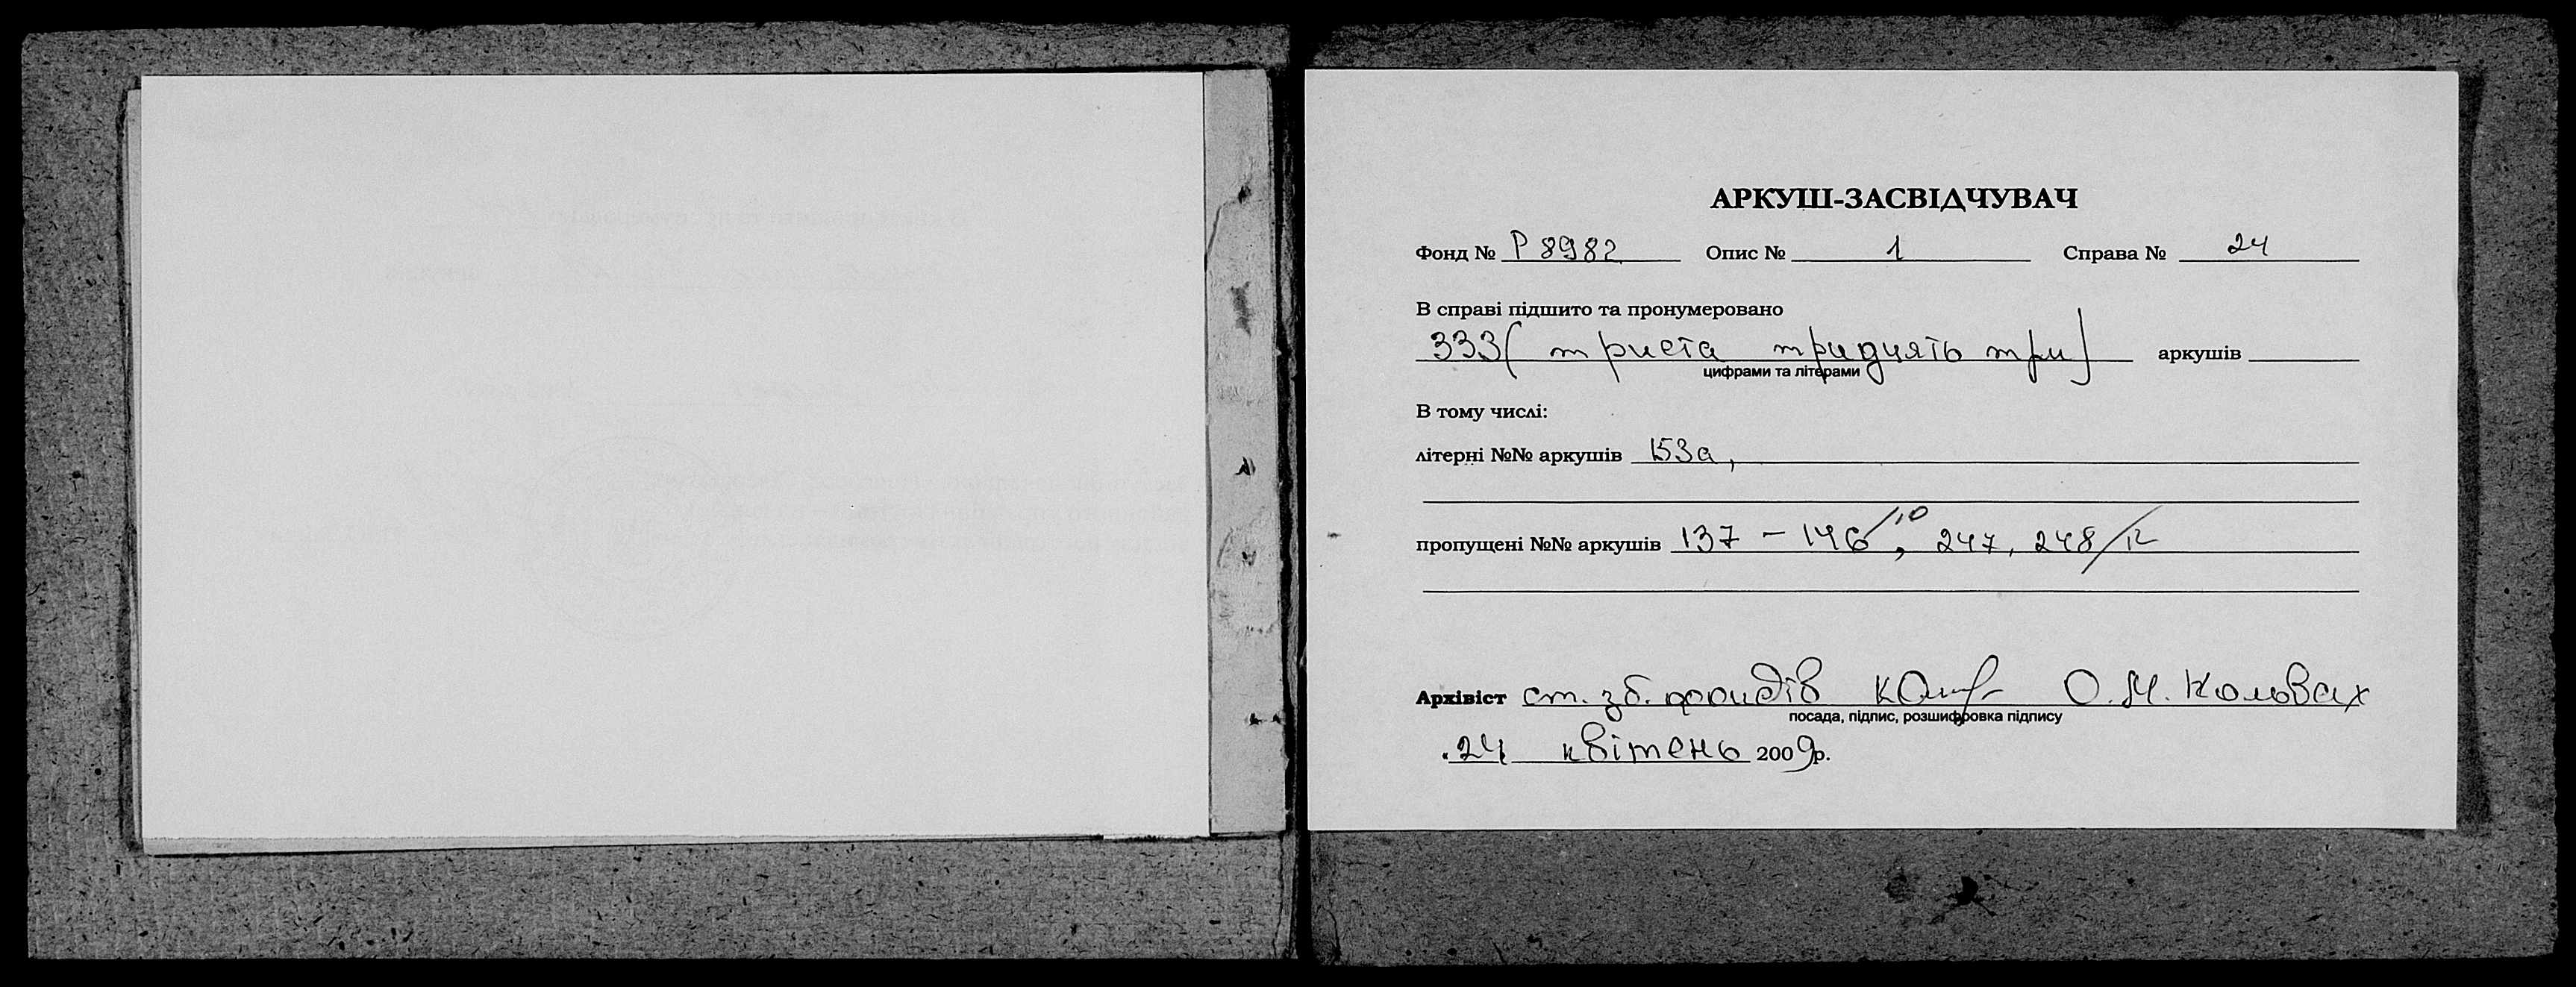 АРКУШ-ЗАСВІДЧУВАЧ
Фонд № Р 8982 Опис № 1 Справа № 24
В справі підшито та пронумеровано
333 (триста тридцять три) аркушів
цифрами та літерами
В тому числі:
літерні №№ аркушів 153а,
пропущені №№ аркушів 137 – 146/10, 247, 248/12
Архівіст ст. зб. фондів О.М. Ковбах
посада, підпис, розшифровка підпису
"24 квітень 2009р.